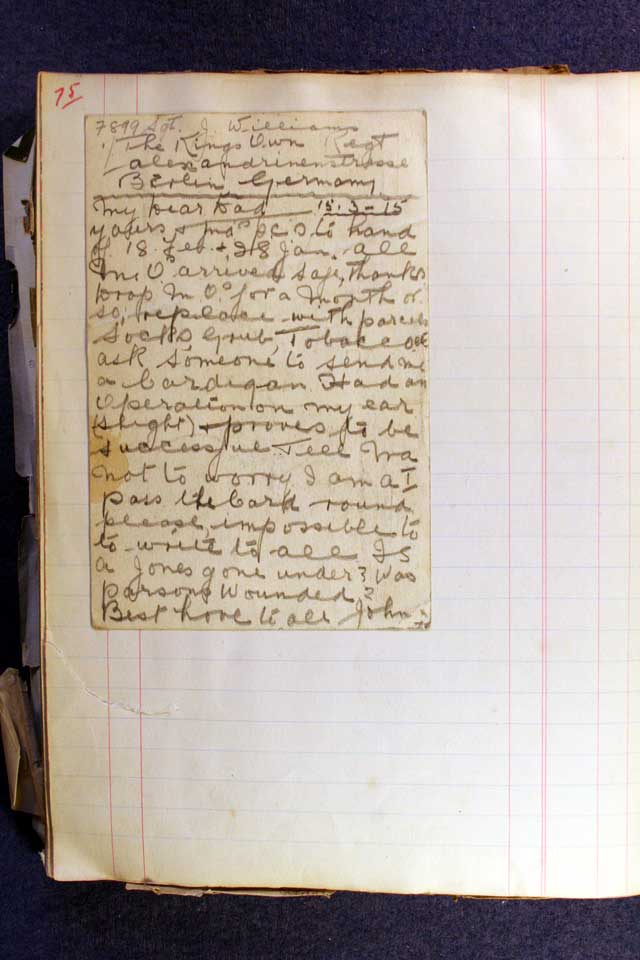 75
7899 Sgt. J. Williams
The Kings Own Regt
alexandrinenstrasse
Berlin Germany
My Dear Dad 15.3-15
yours & ma's pcs to hand
of 18 Feb. & 28 Jan. all
M.Os arrived safe, thanks
Drop M Os for a month or
so, replace with parcels
Socks, Grub, Tobacco etc
ask someone to send me
a Cardigan Had an
Operation on my ear
(slight) & proves to be
successful Tell Ma
not to worry I am a I
pass the Card round
please, impossible to
to write to all Is
a Jones gone under? Was
Parsons Wounded?
Best love to all John